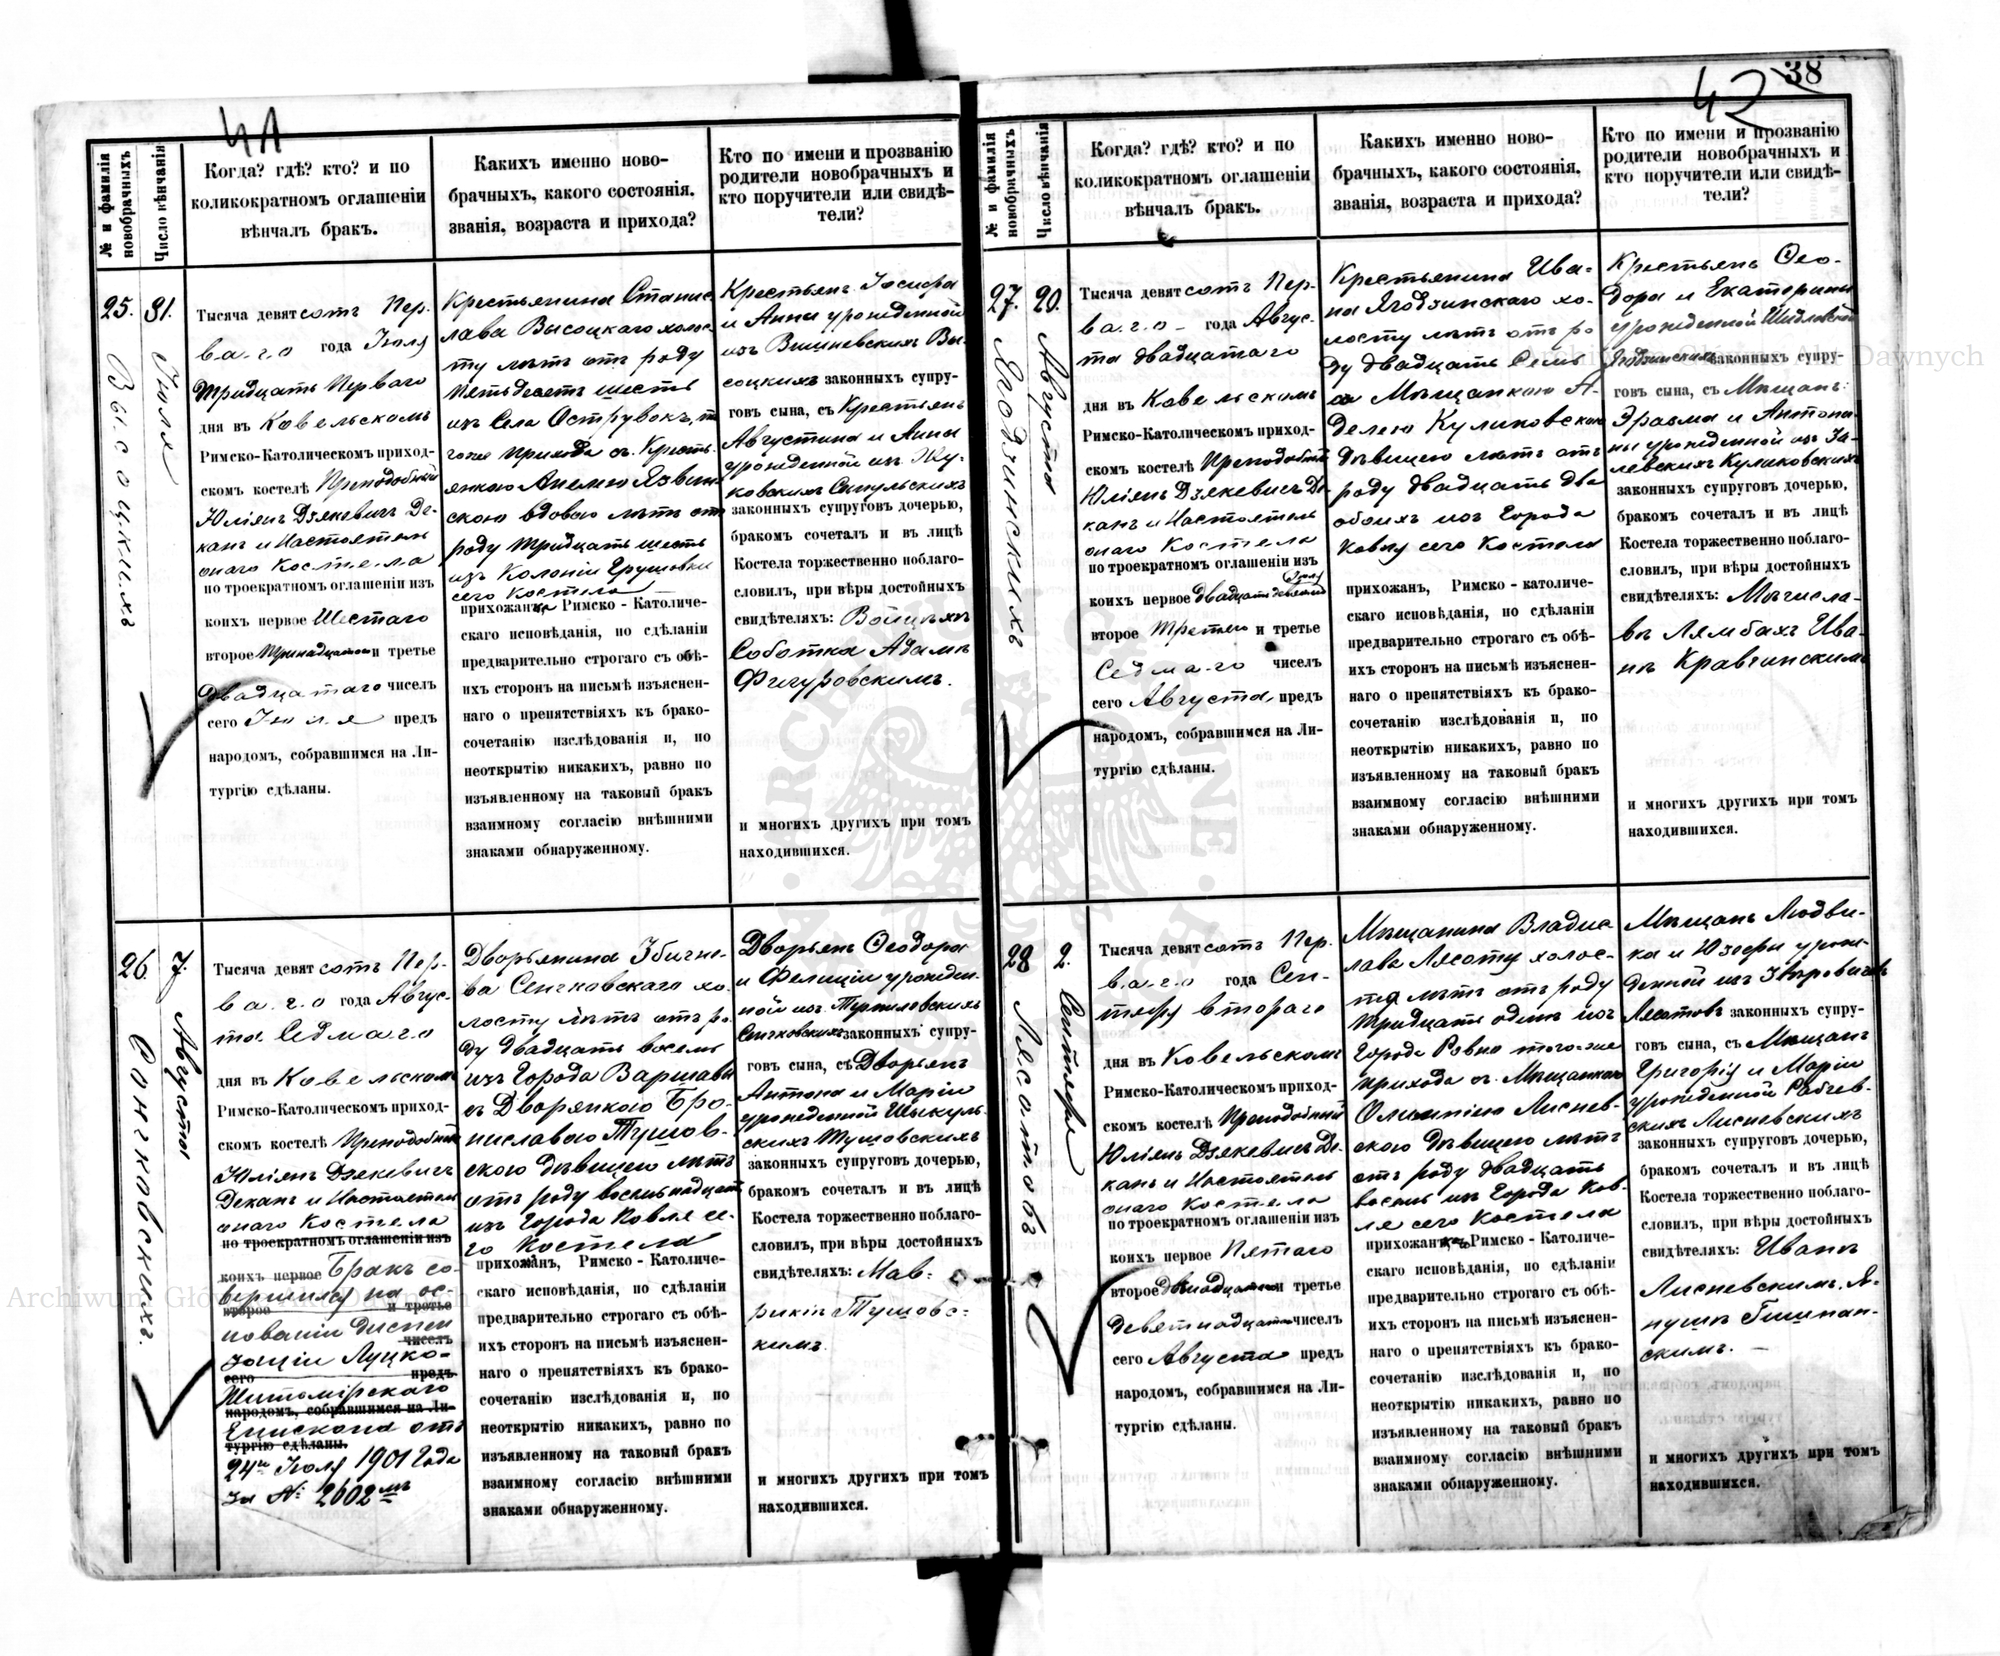 41
№ и фамилія новобрачныхъ
Число вѣнчанія
Когда? гдѣ? кто? и по
коликократномъ оглашеніи
вѣнчалъ бракъ.
Какихъ именно ново-
брачныхъ, какого состоянія,
званія, возраста и прихода?
Кто по имени и прозванію
родители новобрачныхъ и
кто поручители или свидѣ-
тели?
25.
Высоцкихъ
31.
Іюля
Тысяча девятсотъ Пер-
ваго года Іюля
Тридцать Перваго
дня въ Ковельскомъ
Римско-Католическомъ приход-
скомъ костелѣ Преподобный
Юліянъ Дзякевичъ Де-
канъ и Настоятель
онаго Костела
по троекратномъ оглашеніи изъ
коихъ первое Шестаго
второе Тринадцатаго и третье
Двадцатаго чиселъ
сего Іюля предъ
народомъ, собравшимся на Ли-
тургію сдѣланы.
Крестьянина Станис-
лава Высоцкаго холос-
ту лѣтъ отъ роду
пятьдесятъ шесть
изъ Села Острувокъ, то
гоже прихода съ Кресть-
янкою Анелею Язвин-
скою вдовою лѣтъ отъ
роду тридцать шесть
изъ Колоніи Грушовки
сего Костела
прихожанъ Римско - Католиче-
скаго исповѣданія, по сдѣланіи
предварительно строгаго съ обѣ-
ихъ сторонъ на письмѣ изъяснен-
наго о препятствіяхъ къ брако-
сочетанію изслѣдованія и, по
неоткрытію никакихъ, равно по
изъявленному на таковый бракъ
взаимному согласію внѣшними
знаками обнаруженному.
Крестьянъ Іосифа
и Анны урожденной
изъ Вишневскихъ Вы-
соцкихъ законныхъ супру-
говъ сына, съ Крестьянъ
Августина и Анны
урожденной изъ Жу-
ковскихъ Сапульскихъ
законныхъ супруговъ дочерью,
бракомъ сочеталъ и въ лицѣ
Костела торжественно поблаго-
словилъ, при вѣры достойныхъ
свидѣтеляхъ: Войцѣхъ
Соботка Адамъ
Фигуровскимъ.
и многихъ другихъ при томъ
находившихся.
26.
Сенчковскихъ.
7.
Августа
Тысяча девятсотъ Пер-
ваго года Авгус-
та Седмаго
дня въ Ковельскомъ
Римско-Католическомъ приход-
скомъ костелѣ Преподобный
Юліянъ Дзякевичъ
Деканъ и Настоятель
онаго Костела
по троекратномъ оглашеніи изъ
коихъ первое Бракъ со-
вершился на ос-
второе и третье
нованіи диспен
чиселъ
заціи Луцко-
сего предъ
Житомірскаго
народомъ, собравшимся на Ли-
Епископа отъ
тургію сдѣланы.
24го Іюля 1901 года
за № 2602мъ
Дворянина Збигне-
ва Сенчковскаго хо-
лосту лѣтъ отъ ро-
ду двадцать восемь
изъ Города Варшавы
съ Дворянкою Бро-
ниславою Тушов-
скою дѣвицею лѣтъ
отъ роду восемьнадцать
изъ Города Ковля се-
го Костела
прихожанъ, Римско - Католиче-
скаго исповѣданія, по сдѣланіи
предварительно строгаго съ обѣ-
ихъ сторонъ на письмѣ изъяснен-
наго о препятствіяхъ къ брако-
сочетанію изслѣдованія и, по
неоткрытію никакихъ, равно по
изъявленному на таковый бракъ
взаимному согласію внѣшними
знаками обнаруженному.
Дворянъ Ѳеодора
и Фелиціи урожден-
ной изъ
Сенчковскихъ законныхъ супру-
говъ сына, съ Дворянъ
Антона и Маріи
урожденной Шыкуль-
скихъ Тушовскихъ
законныхъ супруговъ дочерью,
бракомъ сочеталъ и въ лицѣ
Костела торжественно поблаго-
словилъ, при вѣры достойныхъ
свидѣтеляхъ: Мав-
рикій Тушовс-
кимъ.
и многихъ другихъ при томъ
находившихся.
42 38
№ и фамилія новобрачныхъ
Число вѣнчанія
Когда? гдѣ? кто? и по
коликократномъ оглашеніи
вѣнчалъ бракъ.
Какихъ именно ново-
брачныхъ, какого состоянія,
званія, возраста и прихода?
Кто по имени и прозванію
родители новобрачныхъ и
кто поручители или свидѣ-
тели?
27.
Ягодзинскихъ
20.
Августа
Тысяча девятсотъ Пер-
ваго года Авгус-
та двадцатаго
дня въ Ковельскомъ
Римско-Католическомъ приход-
скомъ костелѣ Преподобный
Юліянъ Дзякевичъ Де-
канъ и Настоятель
онаго Костела
по троекратномъ оглашеніи изъ
Іюля
коихъ первое двадцать девятаго
второе Третяго и третье
Седмаго чиселъ
сего Августа, предъ
народомъ, собравшимся на Ли-
тургію сдѣланы.
Крестьянина Ива-
на Ягодзинскаго хо-
лосту лѣтъ отъ ро
ду двадцать семь
съ Мѣщанкою А-
делею Куликовскою
дѣвицею лѣтъ отъ
роду двадцать два
обоихъ изъ Города
Ковля сего Костела
прихожан, Римско - католиче-
скаго исповѣданія, по сдѣланіи
предварительно строгаго съ обѣ-
ихъ сторонъ на письмѣ изъяснен-
наго о препятствіяхъ къ брако-
сочетанію изслѣдованія и, по
неоткрытію никакихъ, равно по
изъявленному на таковый бракъ
взаимному согласію внѣшними
знаками обнаруженному.
Крестьянъ Ѳео-
дора и Екатерины
урожденной Шидловской
Ягодзинскихъ законныхъ супру-
говъ сына, съ Мѣщанъ:
Эразма и Антони-
ны урожденной изъ За-
левскихъ Куликовскихъ
законныхъ супруговъ дочерью,
бракомъ сочеталъ и въ лицѣ
Костела торжественно поблаго-
словилъ, при вѣры достойныхъ
свидѣтеляхъ: Мѣчисла-
въ Лямбахъ Ива-
нъ Кравчинскимъ
и многихъ другихъ при томъ
находившихся.
28
Лясотовъ
2.
Сентября
Тысяча девятсотъ Пер-
ваго года Сен-
тября втораго
дня въ Ковельскомъ
Римско-Католическомъ приход-
скомъ костелѣ Преподобный
Юліянъ Дзякевичъ Де-
канъ и Настоятель
онаго Костела
по троекратномъ оглашеніи изъ
коихъ первое Пятаго
второе двѣнадцатаго и третье
Девятнадцатаго чиселъ
сего Августа предъ
народомъ, собравшимся на Ли-
тургію сдѣланы.
Мѣщанина Владис
лава Лясоту холос-
та лѣтъ отъ роду
тридцать одинъ изъ
Города Ровно того-же
прихода съ Мѣщанкою
Олимпіею Лиснев-
скою дѣвицею лѣтъ
отъ роду двадцать
восемь изъ Города Ков-
ля сего Костела
прихожанъ Римско - Католиче-
скаго исповѣданія, по сдѣланіи
предварительно строгаго съ обѣ-
ихъ сторонъ на письмѣ изъяснен-
наго о препятствіяхъ къ брако-
сочетанію изслѣдованія и, по
неоткрытію никакихъ, равно по
изъявленному на таковый бракъ
взаимному согласію внѣшними
знаками обнаруженному.
Мѣщанъ Людви-
ка и Юзефы урож-
денной изъ
Лясотовъ законныхъ супру-
говъ сына, съ Мѣщанъ
Григорія и Маріи
урожденной Рабчев-
скихъ Лисневскихъ
законныхъ супруговъ дочерью,
бракомъ сочеталъ и въ лицѣ
Костела торжественно поблаго-
словилъ, при вѣры достойныхъ
свидѣтеляхъ: Иванъ
Лисневскимъ, Я-
нушъ Гишпан-
скимъ. —
и многихъ другихъ при томъ
находившихся.
Archiwum Główne Akt Dawnych
Archiwum Główne Akt Dawnych
ARCHIWUM GŁÓWNE